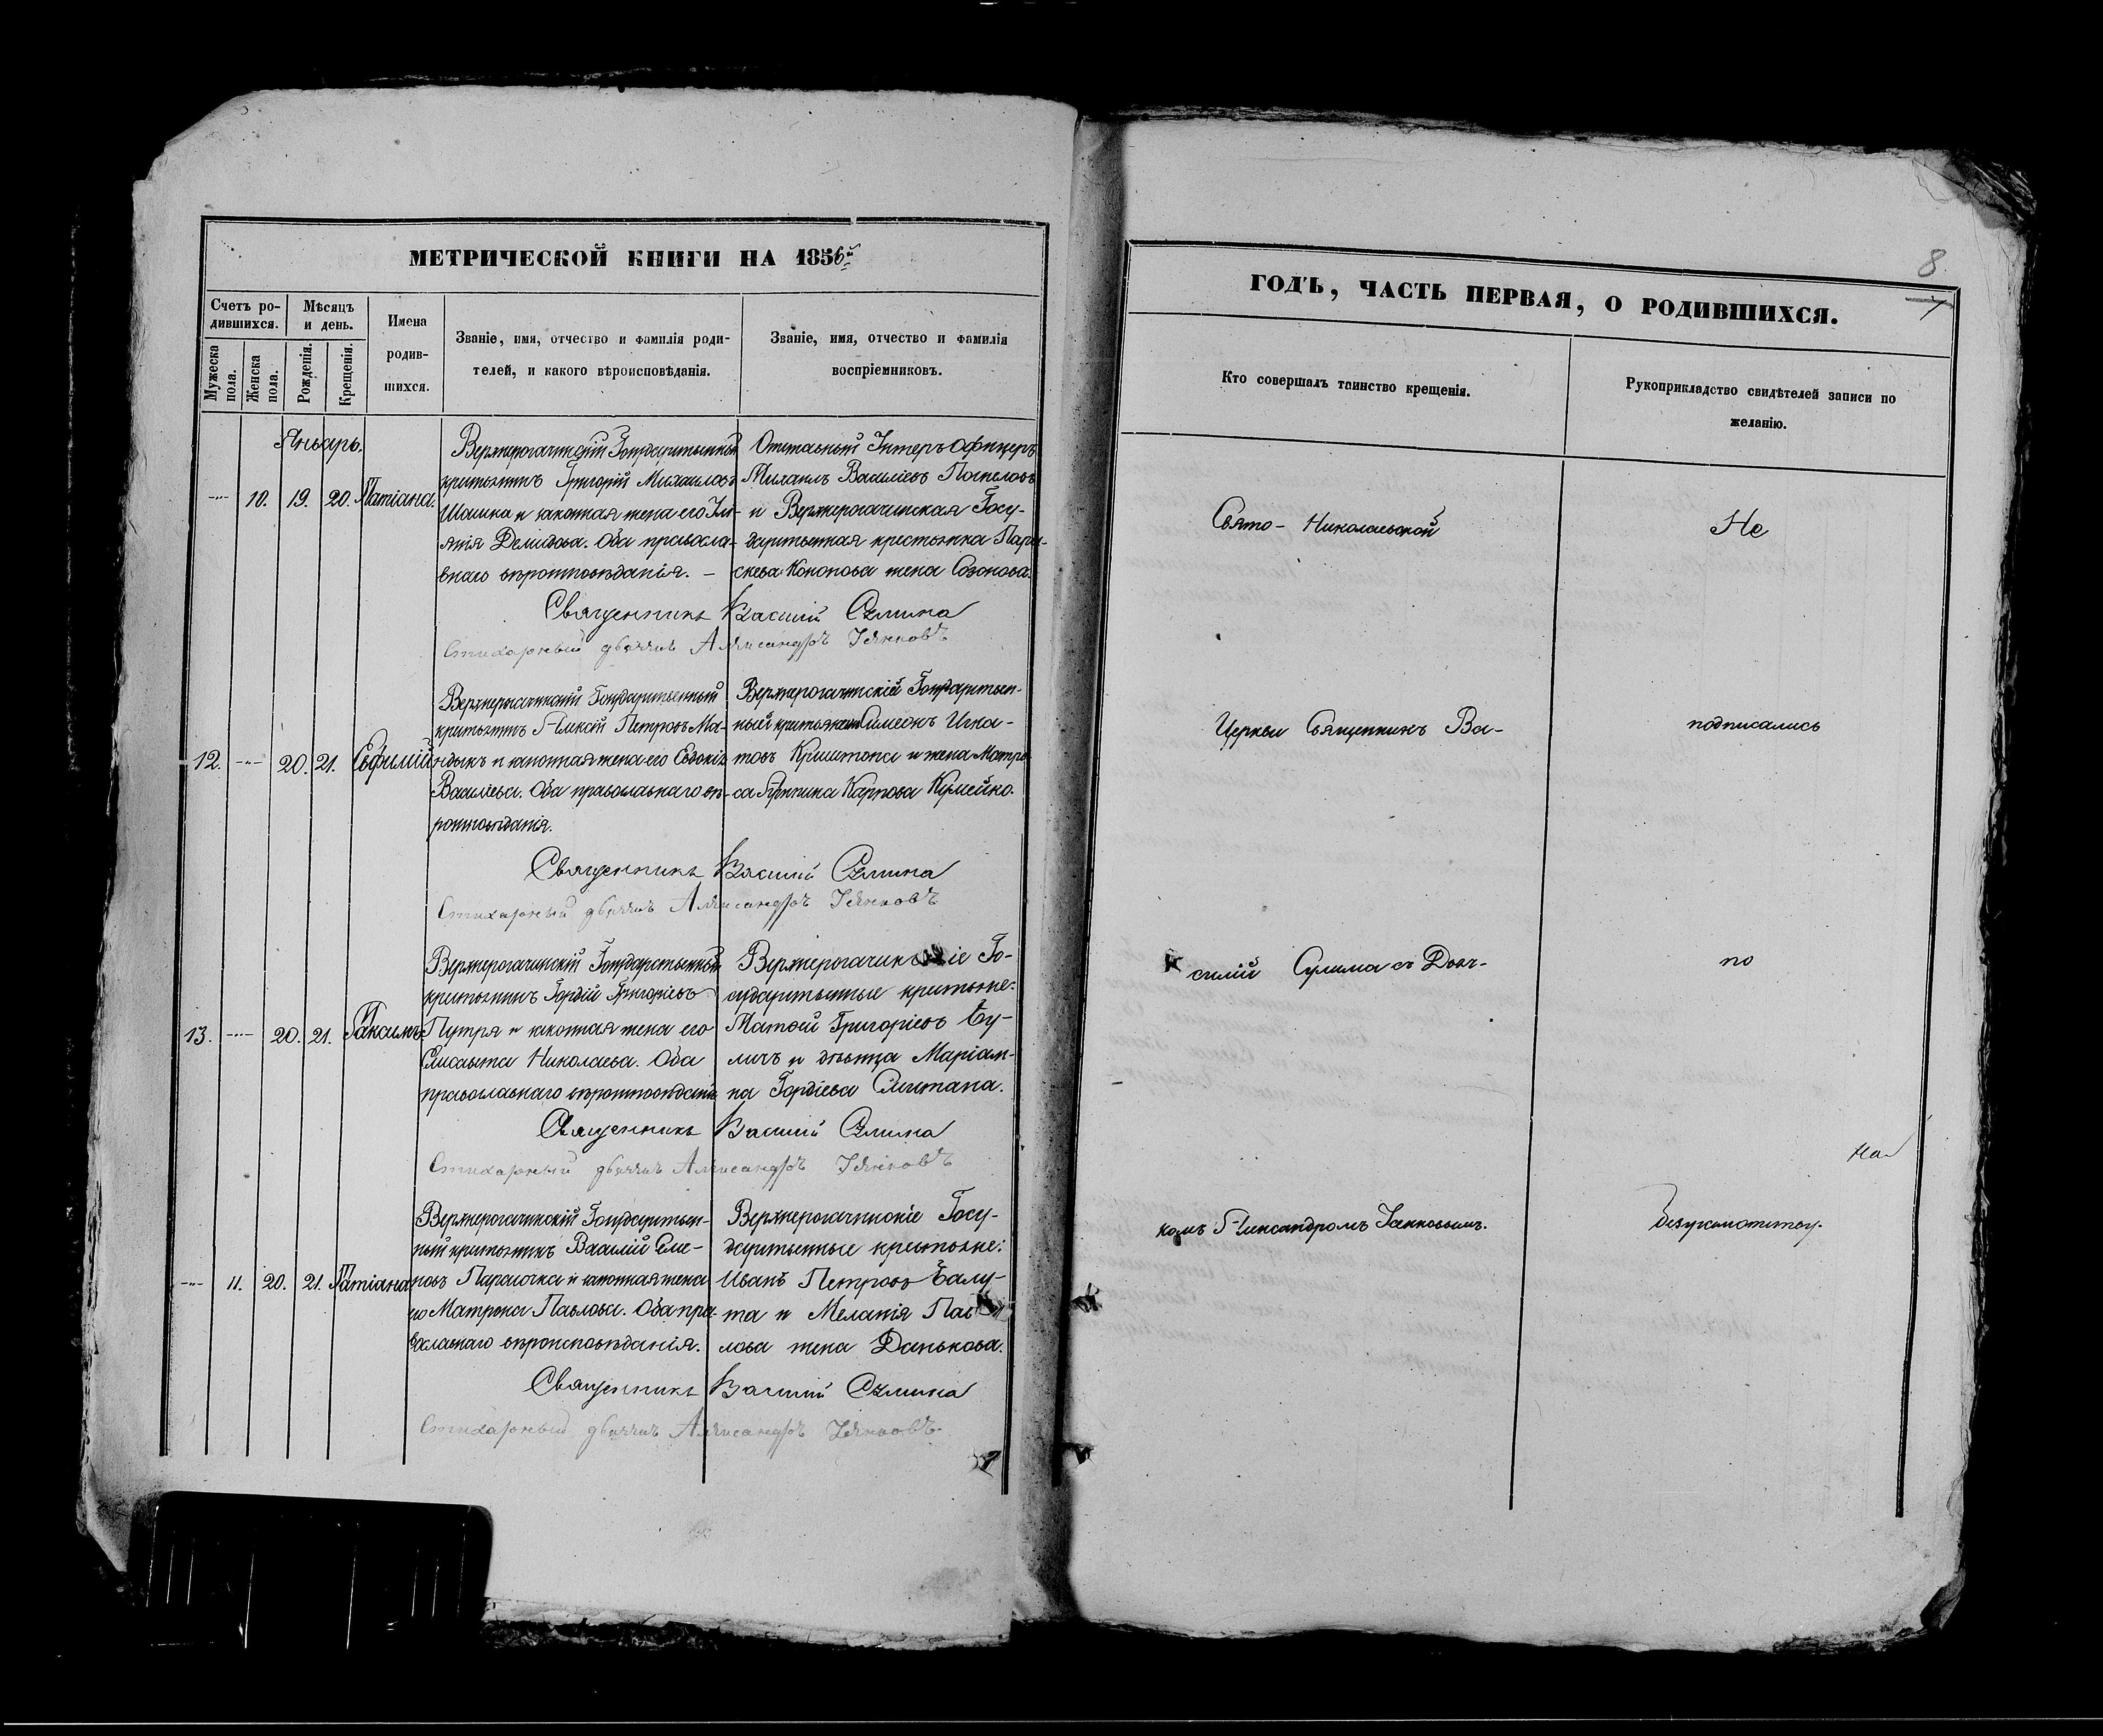 МЕТРИЧЕСКОЙ КНИГИ НА 1856й
Счетъ ро-
дившихся.
Мѣсяцъ
и день.
Мужеска
пола.
Женска
пола.
Рожденія.
Крещенія.
Имена
родив-
шихся.
Званіе, имя, отчество и фамилія роди-
телей, и какого вѣроисповѣданія.
Званіе, имя, отчество и фамилія
воспріемниковъ.
Январь.
10. 19. 20. Татіана.
Верхнерогачинскій Государственный
крестьянинъ Григорій Михаиловъ
и законная жена его
Демидова. Оба правосла-
внаго вѣроисповѣданія. –
Отставный Унтеръ Офицеръ
Михаилъ Василіевъ
и Верхнерогачинская Госу-
дарственная крестьянка Пара-
скева Кононова жена Созонова.
Священникъ Василій Сулима
Стихарный дьячекъ Александръ Іваковъ
12. 20. 21. Евфимій
Верхнерогачинскій Государственный
крестьянинъ Алексій Петровъ Ма-
ндыкъ и законная жена его Евдокія
Василіева. Оба православнаго вѣ-
роисповѣданія.
Верхнерогачинскій Государствен-
ный крестьянинъ Симеонъ Игна-
товъ и жена Матро-
са Карпова
Священникъ Василій Сулима
Стихарный дьячекъ Александръ Іваковъ
13. 20. 21. Максимъ
Верхнерогачинскій Государственный
крестьянинъ Гордій Григоріевъ
Путря и законная жена его
Елисавета Николаева. Оба
православнаго вѣроисповѣданія
Верхнерогачинскіе Го-
сударственные крестьяне:
Матѳей Григоріевъ
и дѣвица Маріам-
на Гордіева Сметана.
Священникъ Василій Сулима
Стихарный дьячекъ Александръ Іваковъ
11. 20. 21. Татіана
Верхнерогачинскій Государствен-
ный крестьянинъ Василій Семе-
новъ и законная жена
его Матрона Павлова. Оба пра-
вославнаго вѣроисповѣданія.
Верхнерогачинскіе Госу-
дарственные крестьяне:
Иванъ Петровъ Балу-
та и Меланія Пав-
лова жена Данькова.
Священникъ Василій Сулима
Стихарный дьячекъ Александръ Іваковъ
8
7
ГОДЪ, ЧАСТЬ ПЕРВАЯ, О РОДИВШИХСЯ.
Кто совершалъ таинство крещенія.
Рукоприкладство свидѣтелей записи по
желанію.
Свято- Николаевской
Не
Церкви Священникъ Ва-
подписались
силій Сулима съ Дьяч-
по
На
комъ Александромъ
безграмотству.